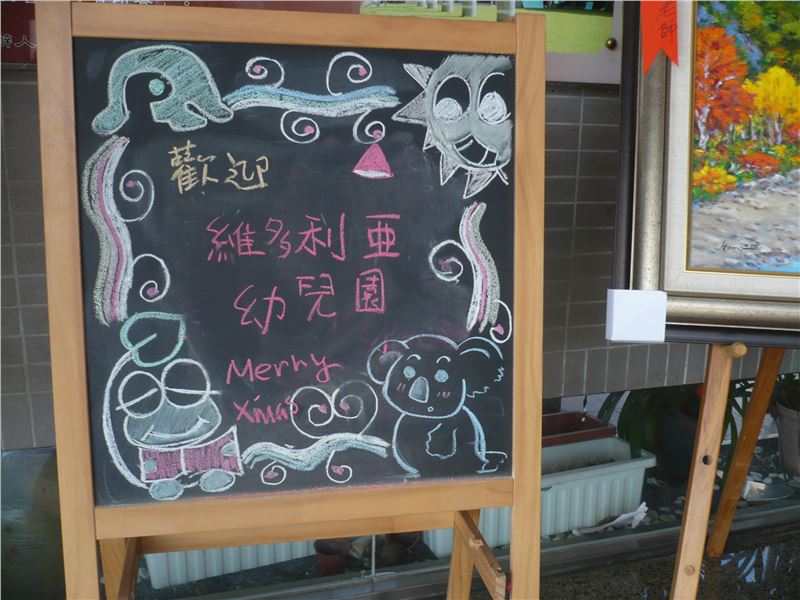 歡迎
維多利亞
幼兒園
Merry
Xmas
老師